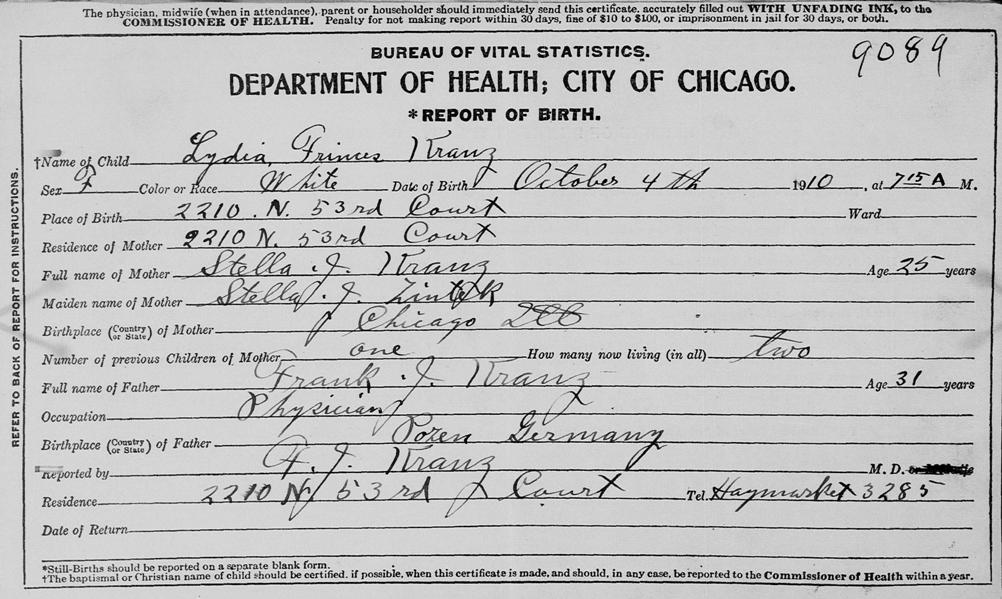 The physician, midwife (when in attendance), parent or householder should immediately send this certificate, accurately filled out WITH UNFADING INK, to the
COMMISSIONER OF HEALTH. Penalty for not making report within 30 days, fine of $10 to $100, or imprisonment in jail for 30 days, or both.
BUREAU OF VITAL STATISTICS.
9089
DEPARTMENT OF HEALTH; CITY OF CHICAGO.
*REPORT OF BIRTH.
†Name of Child Lydia Frinces Kranz
Sex F Color or Race White Date of Birth October 4th 1910, at 7 15 A M.
Place of Birth 2210 N. 53rd Court Ward
Residence of Mother 2210 N. 53rd Court
Full name of Mother Stella J. Kranz Age 25 years
Maiden name of Mother Stella J. Zintak
Birthplace (Country or State) of Mother Chicago Ill
Number of previous Children of Mother one How many now living (in all) two
Full name of Father Frank J. Kranz Age 31 years
Occupation Physician
Birthplace (Country or State) of Father Pozen Germany
Reported by F. J. Kranz M. D.
Residence 2210 N. 53rd Court Tel. Haymarket 3285
Date of Return
*Still-Births should be reported on a separate blank form.
†The baptismal or Christian name of child should be certified, if possible, when this certificate is made, and should, in any case, be reported to the Commissioner of Health within a year.
REFER TO BACK OF REPORT FOR INSTRUCTIONS.